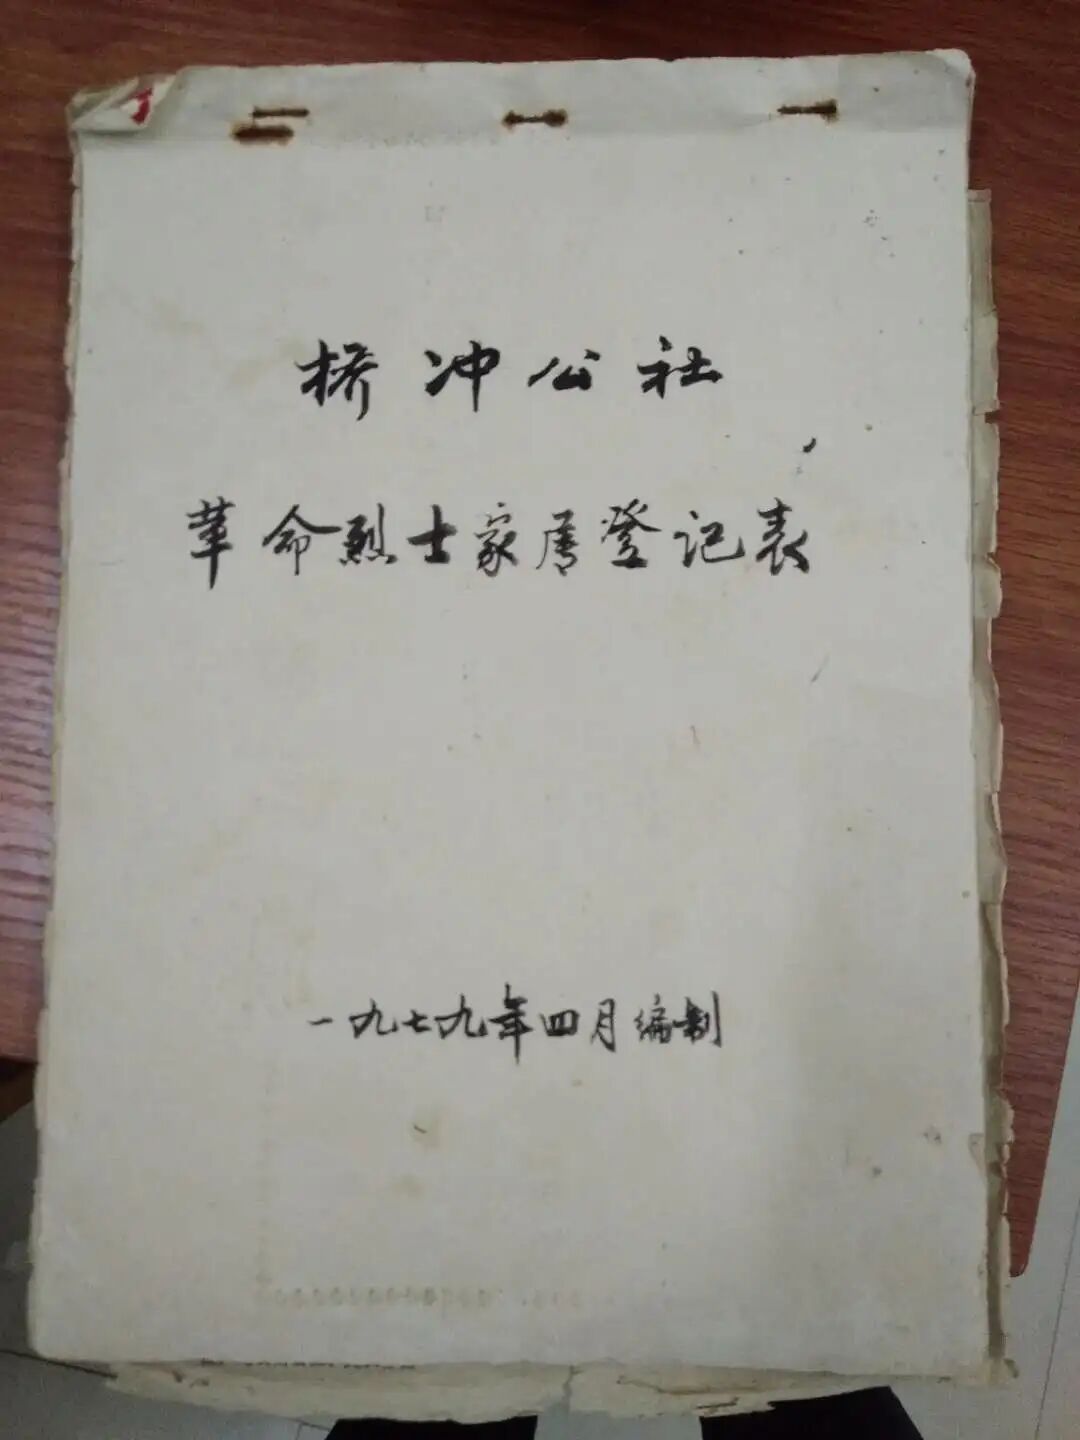 桥冲公社
革命烈士家属登记表
一九七九年四月编制